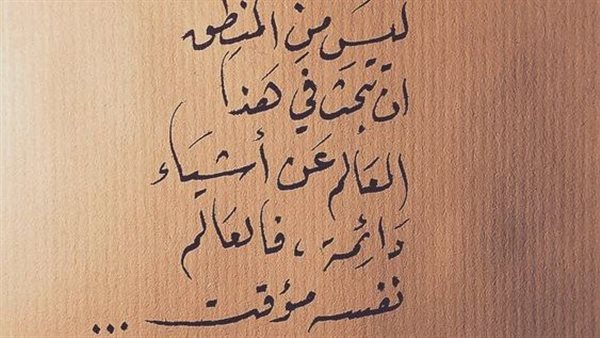 ليسَ مِنِ المنطِق
ان تبحث في هَذا
العَالم عَن أشيَاء
دَائِمة ، فالعَالم
نفسه مؤقت ...